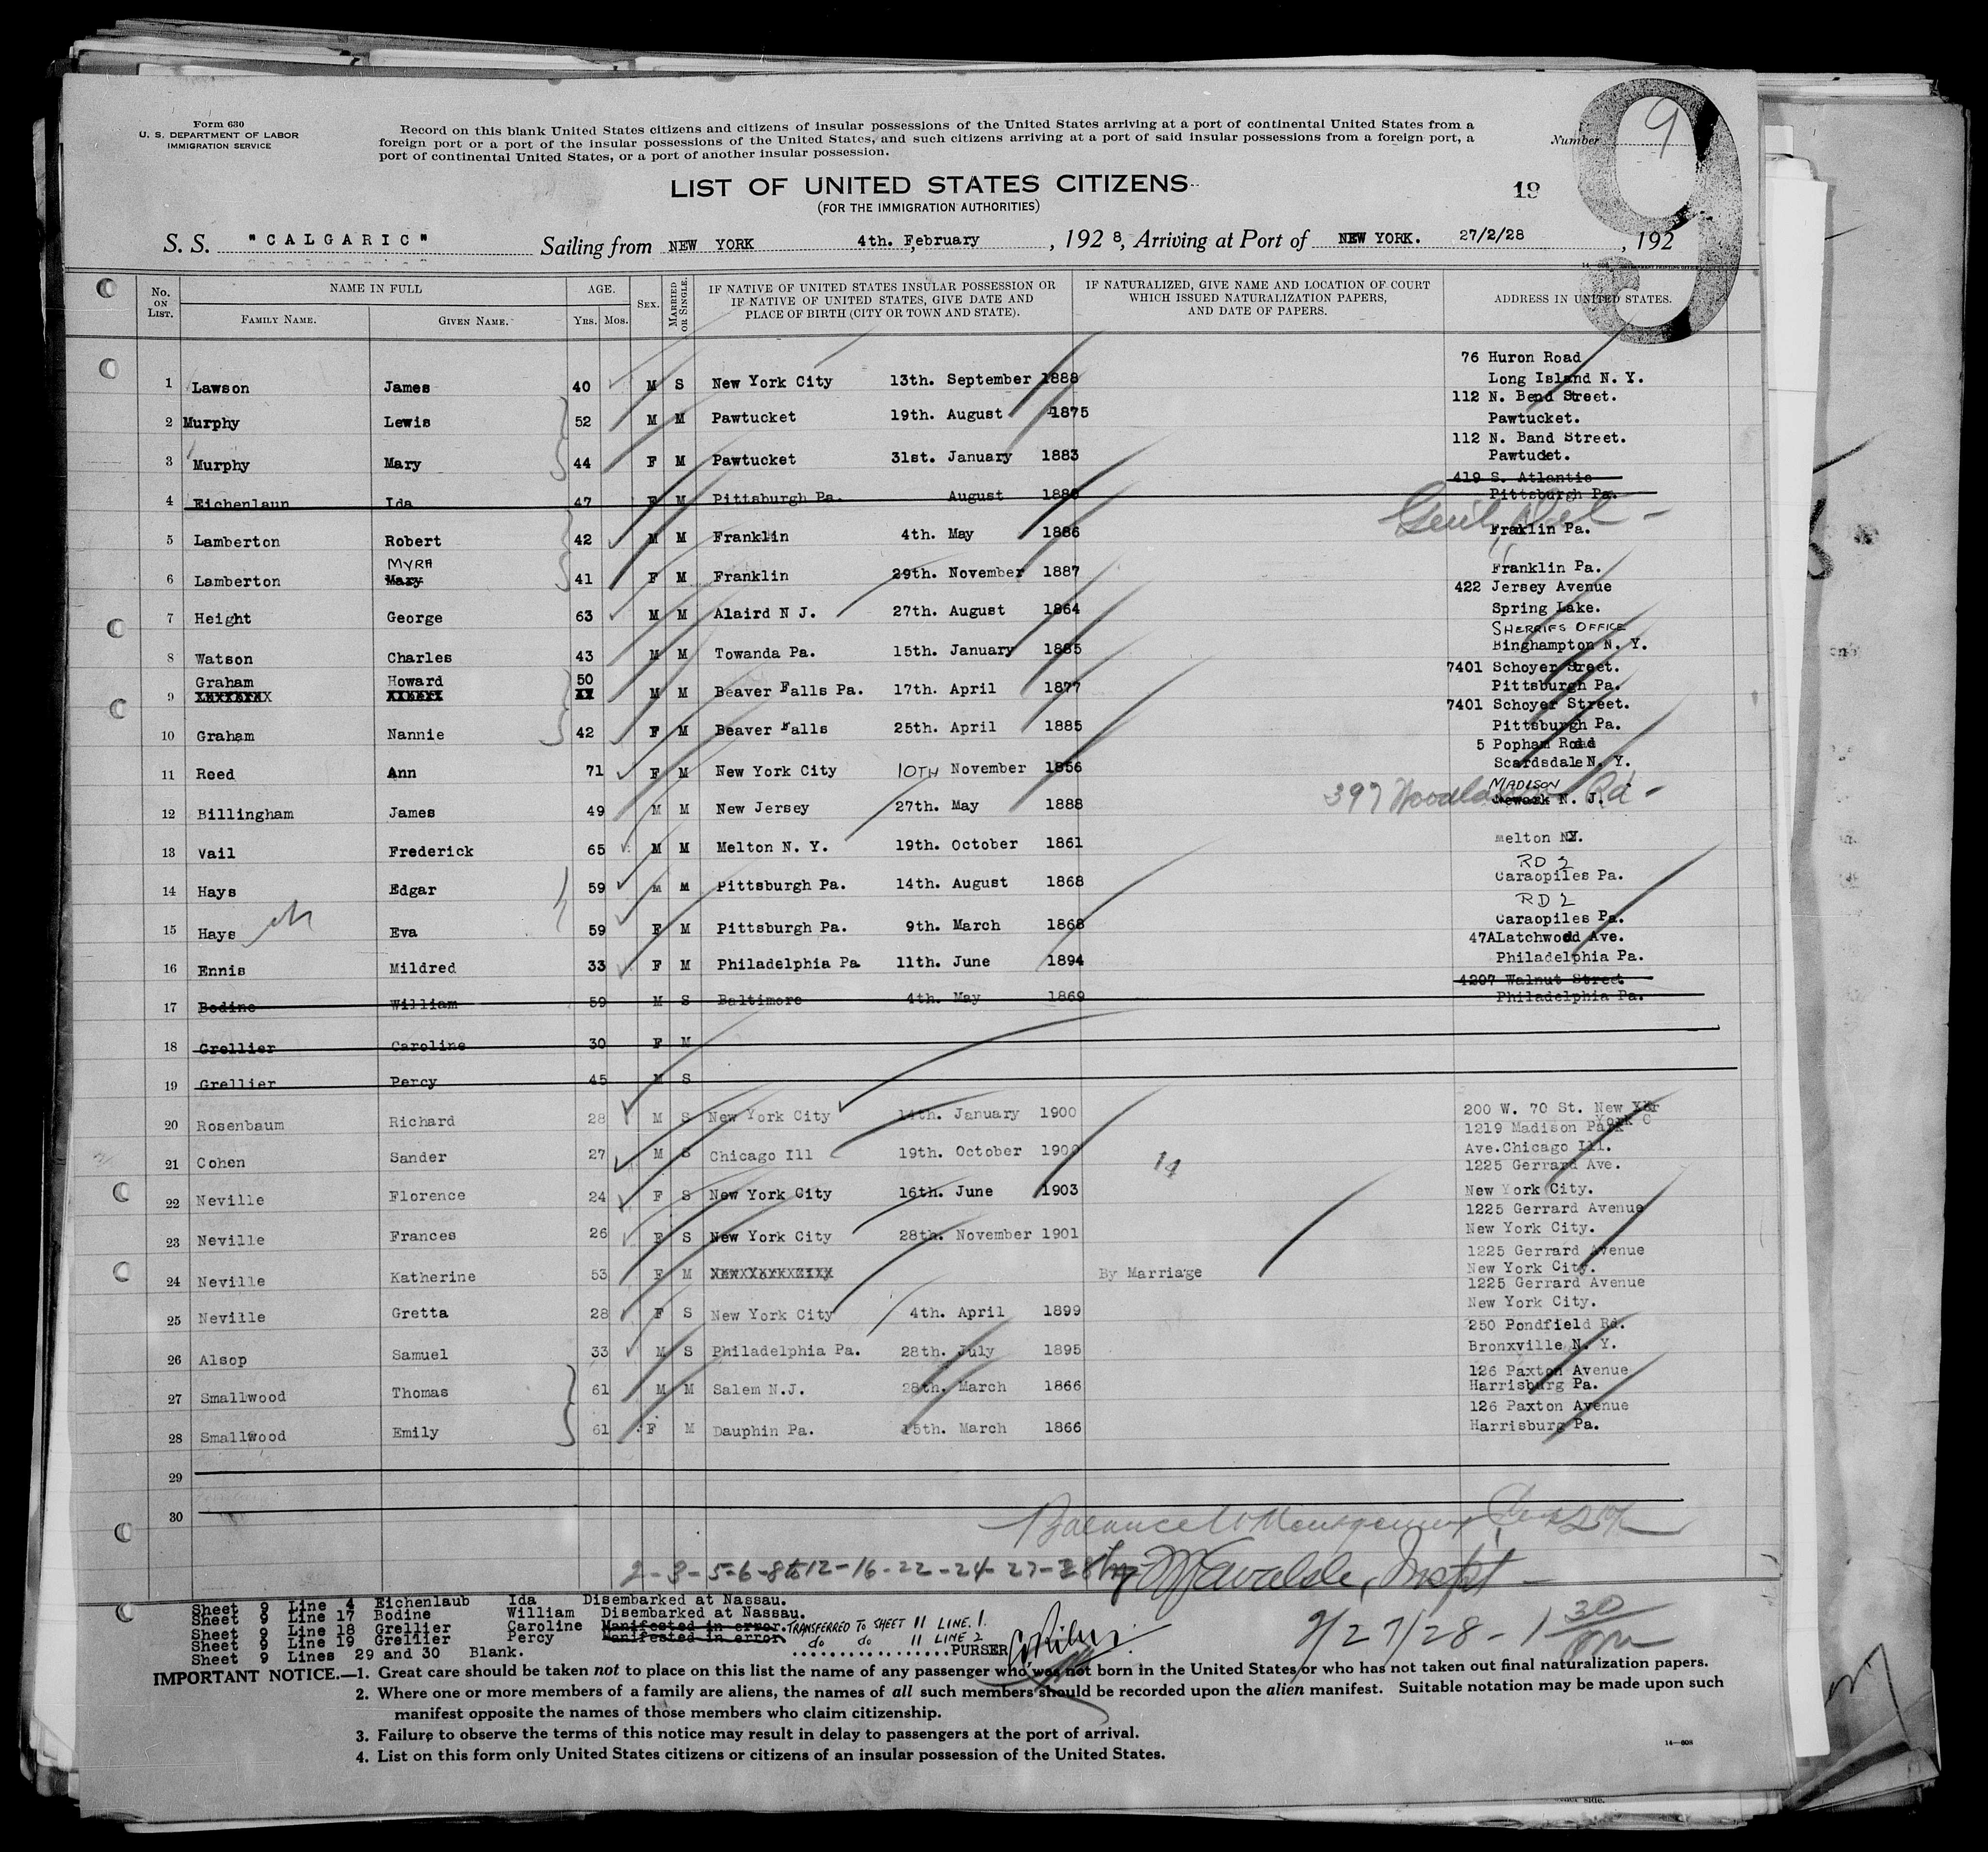 Form 630
U. S. DEPARTMENT OF LABOR
IMMIGRATION SERVICE
Record on this blank United States citizens and citizens of insular possessions of the United States arriving at a port of continental United States from a
foreign port or a port of the insular possessions of the United States, and such citizens arriving at a port of said insular possessions from a foreign port, a
port of continental United States, or a port of another insular possession.
Number 9
9
LIST OF UNITED STATES CITIZENS
(FOR THE IMMIGRATION AUTHORITIES)
19
S. S. "CALGARIC" Sailing from NEW YORK 4th. February, 1928, Arriving at Port of NEW YORK. 27/2/28, 192
No. ON LIST. NAME IN FULL AGE. SEX. MARRIED OR SINGLE. IF NATIVE OF UNITED STATES INSULAR POSSESSION OR IF NATIVE OF UNITED STATES, GIVE DATE AND PLACE OF BIRTH (CITY OR TOWN AND STATE). IF NATURALIZED, GIVE NAME AND LOCATION OF COURT WHICH ISSUED NATURALIZATION PAPERS, AND DATE OF PAPERS. ADDRESS IN UNITED STATES.
FAMILY NAME. GIVEN NAME. Yrs. Mos.
76 Huron Road
1 Lawson James 40 M S New York City 13th. September 1888 Long Island N. Y.
112 N. Bend Street.
2 Murphy Lewis 52 M M Pawtucket 19th. August 1875 Pawtucket.
112 N. Band Street.
3 Murphy Mary 44 F M Pawtucket 31st. January 1883 Pawtucket.
419 S. Atlantic
4 Eichenlaun Ida 47 F M Pittsburgh Pa. August 1880 Pittsburgh Pa.
5 Lamberton Robert 42 M M Franklin 4th. May 1886 Fraklin Pa.
MYRA
6 Lamberton Mary 41 F M Franklin 29th. November 1887 Franklin Pa.
422 Jersey Avenue
7 Height George 63 M M Alaird N J. 27th. August 1864 Spring Lake.
SHERRIFS OFFICE
8 Watson Charles 43 M M Towanda Pa. 15th. January 1885 Binghampton N. Y.
7401 Schoyer Street.
9 Graham Howard 50 M M Beaver Falls Pa. 17th. April 1877 Pittsburgh Pa.
7401 Schoyer Street.
10 Graham Nannie 42 F M Beaver Falls 25th. April 1885 Pittsburgh Pa.
5 Popham Road
11 Reed Ann 71 F M New York City 10TH November 1856 Scardsdale N. Y.
MADISON
12 Billingham James 49 M M New Jersey 27th. May 1888 397 Woodland Rd - Newark N. J.
13 Vail Frederick 65 M M Melton N. Y. 19th. October 1861 Melton NY.
RD 2
14 Hays Edgar 59 M M Pittsburgh Pa. 14th. August 1868 Caraopiles Pa.
RD 2
15 Hays Eva 59 F M Pittsburgh Pa. 9th. March 1868 Caraopiles Pa.
47ALatchwood Ave.
16 Ennis Mildred 33 F M Philadelphia Pa 11th. June 1894 Philadelphia Pa.
4207 Walnut Street
17 Bodine William 59 M S Baltimore 4th. May 1869 Philadelphia Pa.
18 Grellier Caroline 30 F M
19 Grellier Percy 45 M S
20 Rosenbaum Richard 28 M S New York City 14th. January 1900 200 W. 70 St. New York C
1219 Madison Park
21 Cohen Sander 27 M S Chicago Ill 19th. October 1900 14 Ave.Chicago Ill.
1225 Gerrard Ave.
22 Neville Florence 24 F S New York City 16th. June 1903 New York City.
1225 Gerrard Avenue
23 Neville Frances 26 F S New York City 28th. November 1901 New York City.
1225 Gerrard Avenue
24 Neville Katherine 53 F M By Marriage New York City.
1225 Gerrard Avenue
25 Neville Gretta 28 F S New York City 4th. April 1899 New York City.
250 Pondfield Rd.
26 Alsop Samuel 33 M S Philadelphia Pa. 28th. July 1895 Bronxville N. Y.
126 Paxton Avenue
27 Smallwood Thomas 61 M M Salem N.J. 28th. March 1866 Harrisburg Pa.
126 Paxton Avenue
28 Smallwood Emily 61 F M Dauphin Pa. 15th. March 1866 Harrisburg Pa.
29
30
Balance
2-3-5-6-8to12-16-22-24-27-28 by Inspt
2/27/28 - 1 30 pm
Sheet 9 Line 4 Eichenlaub Ida Disembarked at Nassau.
Sheet 9 Line 17 Bodine William Disembarked at Nassau.
Sheet 9 Line 18 Grellier Caroline Manifested in error. TRANSFERRED TO SHEET 11 LINE. 1.
Sheet 9 Line 19 Grellier Percy Manifested in error. do do 11 LINE 2
Sheet 9 Lines 29 and 30 Blank. PURSER
IMPORTANT NOTICE.—1. Great care should be taken not to place on this list the name of any passenger who was not born in the United States or who has not taken out final naturalization papers.
2. Where one or more members of a family are aliens, the names of all such members should be recorded upon the alien manifest. Suitable notation may be made upon such
manifest opposite the names of those members who claim citizenship.
3. Failure to observe the terms of this notice may result in delay to passengers at the port of arrival.
4. List on this form only United States citizens or citizens of an insular possession of the United States.
14—608